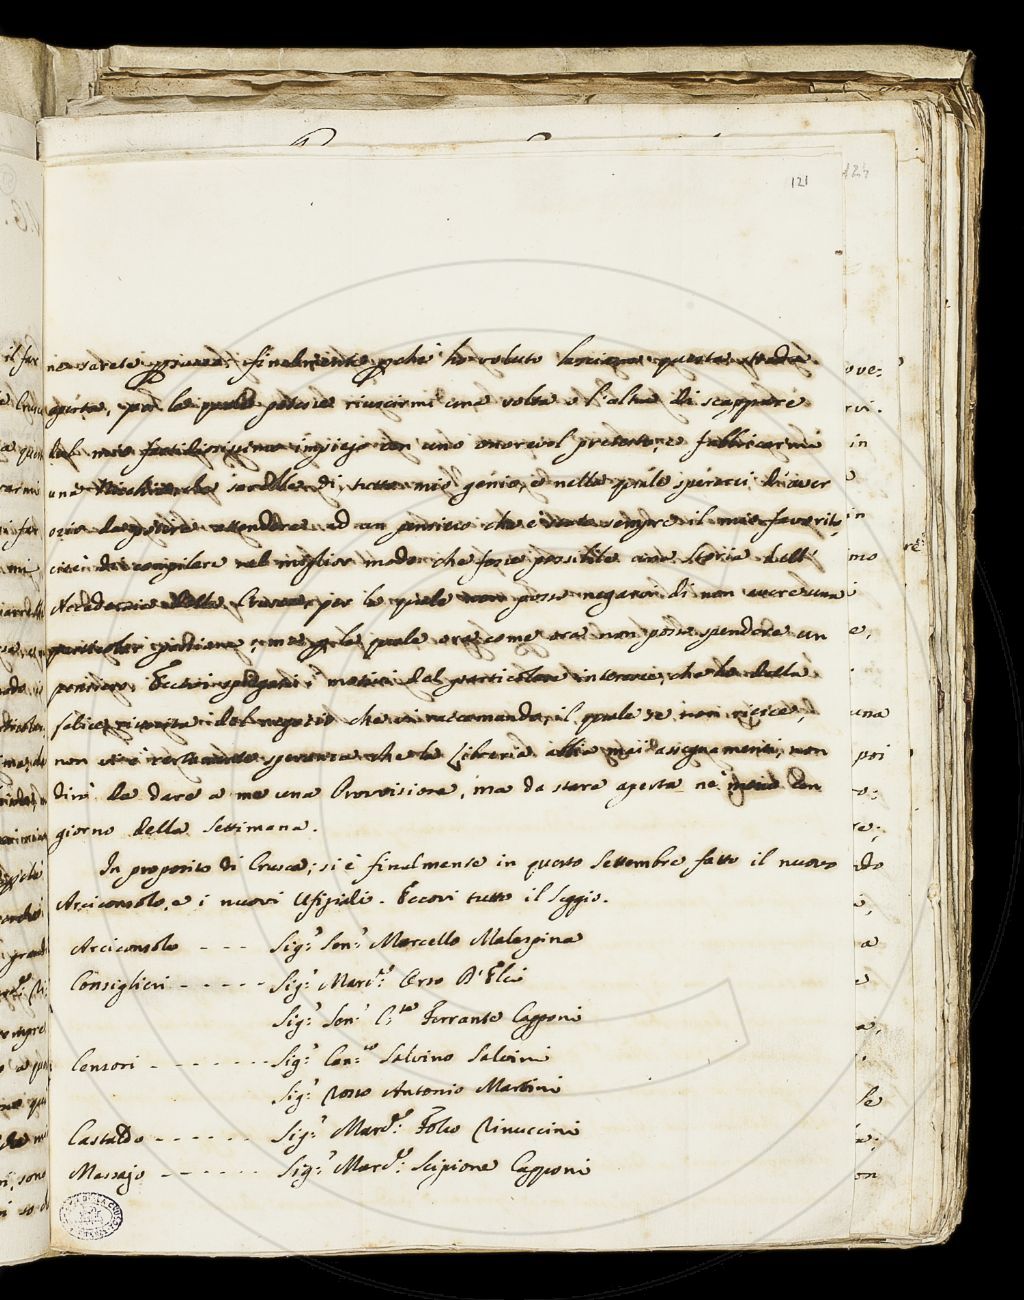 121
124
ne sarete finalmente perchè ho voluto lasciarmi questa strada
aperta, per la quale potesse riuscirmi una volta o l'altra di scappare
dal mio fastidiosissimo impiego con uno onorevol pretesto, e fabbricarmi
una Nicchia che sarebbe di tutto mio genio, e nella quale sperarei d'aver
ozio da potere attendere ad un pensiero che è stato sempre il mio favorito,
cioè di compilare nel miglior modo che fosse possibile una Storia dell'
Accademia della Crusca, per la quale non posso negarvi di non avere una
particolar passione, e per la quale ora come ora non posso spendere un
pensiero. Eccovi i motivi del particolare interesse, che ho della
felice riuscita del negozio che vi raccomando, il quale se non riesce,
non vi è certamente speranza che la Libreria abbia mai assegnamenti, non
dirò da dare a me una Provvisione, ma da stare aperta nè meno un
giorno della Settimana.
In proposito di Crusca; si è finalmente in questo Settembre fatto il nuovo
Arciconsolo, e i nuovi Ufiziali. Eccovi tutto il Seggio.
Arciconsolo - - - Sig.r Sen.r Marcello Malaspina
Consiglieri - - - - - Sig.r March.e Orso D'Elci
Sig.r Sen.r C.te Ferrante Capponi
Censori - - - - - - Sig.r Can.co Salvino Salvini
Sig.r Rosso Antonio Martini
Castaldo - - - - - - Sig.r March.e Folco Rinuccini
Massajo - - - - - - Sig.r March.e Scipione Capponi